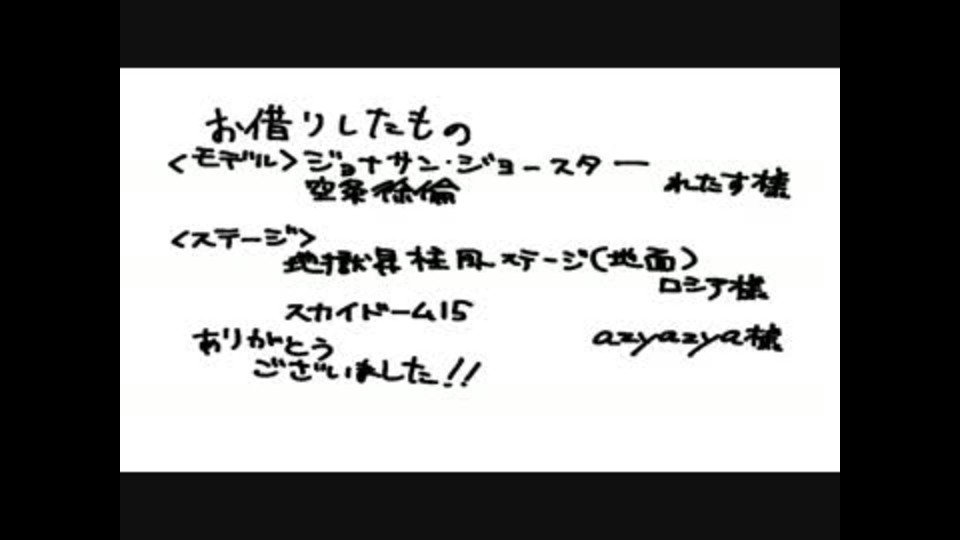 お借りしたもの
<モデル>ジョナサン・ジョースター
空条徐倫
れたす様
<ステージ>
地獄昇柱風ステージ(地面)
ロシア様
スカイドーム15
azyazya様
ありがとう
ございました!!